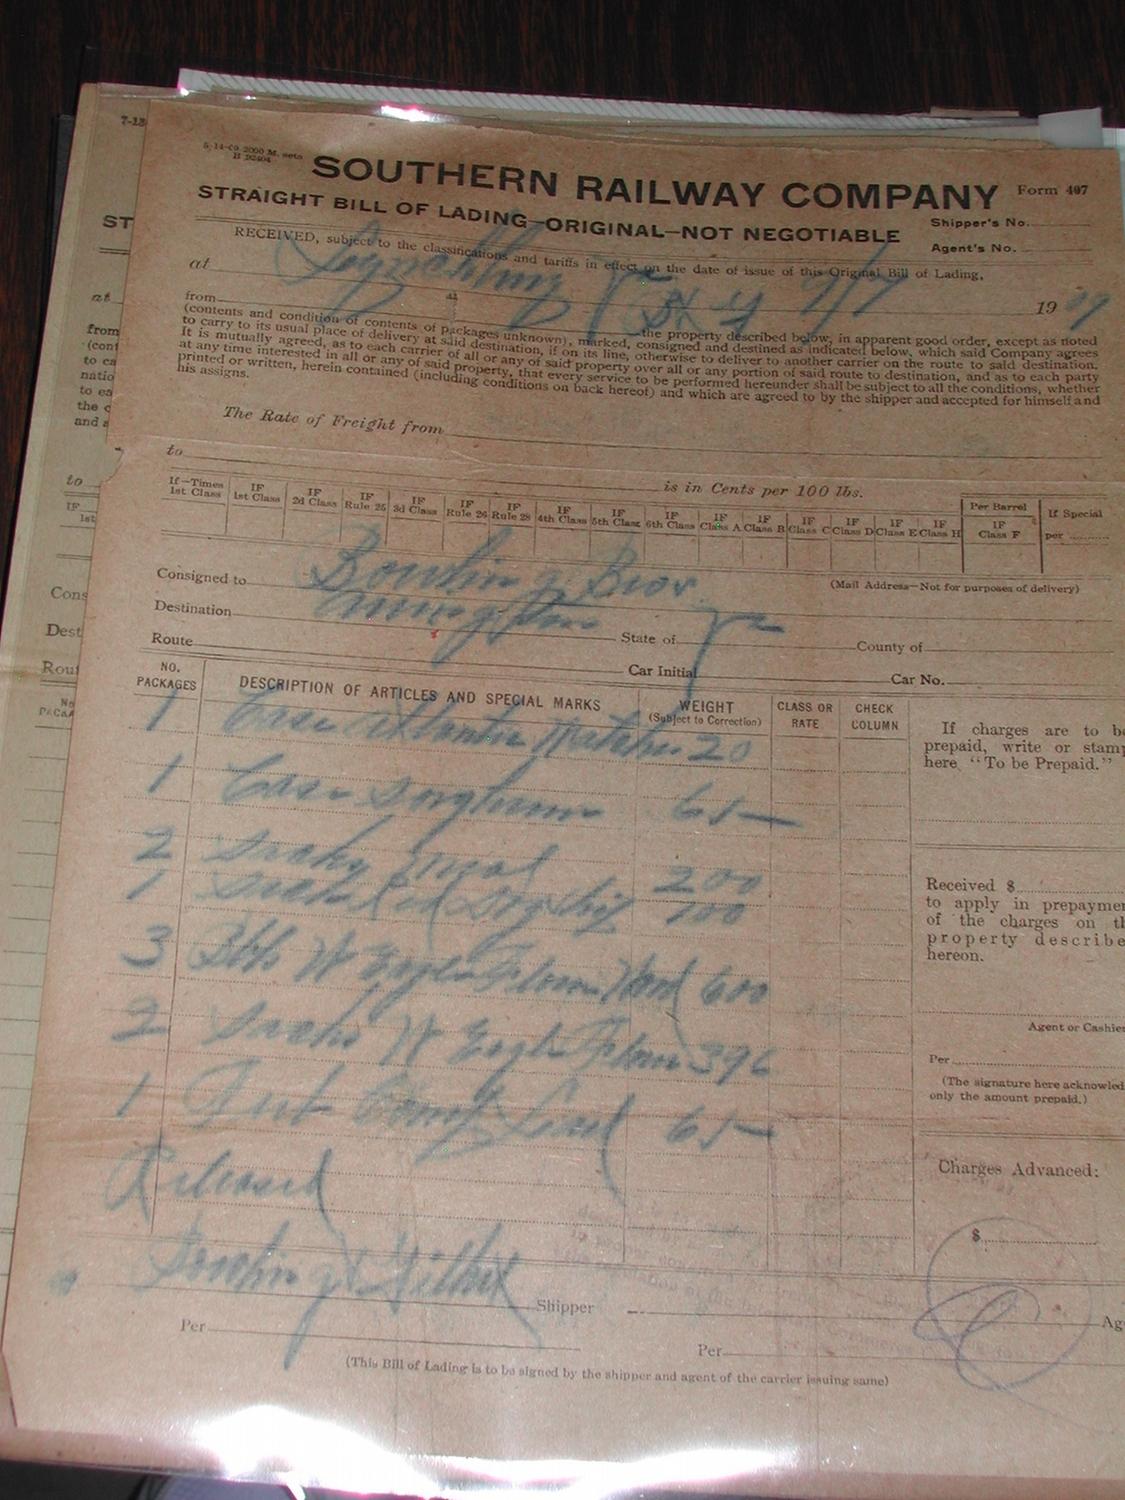 7-13
5-14-09 2000 M. sets
H 92404
SOUTHERN RAILWAY COMPANY
Form 407
STRAIGHT BILL OF LADING—ORIGINAL—NOT NEGOTIABLE
Shipper's No.
Agent's No.
RECEIVED, subject to the classifications and tariffs in effect on the date of issue of this Original Bill of Lading,
at Lynchburg 9/7 1909
from the property described below, in apparent good order, except as noted
(contents and condition of contents of packages unknown), marked, consigned and destined as indicated below, which said Company agrees
to carry to its usual place of delivery at said destination, if on its line, otherwise to deliver to another carrier on the route to said destination.
It is mutually agreed, as to each carrier of all or any of said property over all or any portion of said route to destination, and as to each party
at any time interested in all or any of said property, that every service to be performed hereunder shall be subject to all the conditions, whether
printed or written, herein contained (including conditions on back hereof) and which are agreed to by the shipper and accepted for himself and
his assigns.
The Rate of Freight from
to is in Cents per 100 lbs.
If—Times 1st Class IF 1st Class IF 2d Class IF Rule 25 IF 3d Class IF Rule 26 IF Rule 28 IF 4th Class IF 5th Class IF 6th Class IF Class A IF Class B IF Class C IF Class D IF Class E IF Class H Per Barrel IF Class F If Special per
Consigned to Bowling Bros
(Mail Address—Not for purposes of delivery)
Destination State of Va County of
Route Car Initial Car No.
NO. PACKAGES DESCRIPTION OF ARTICLES AND SPECIAL MARKS WEIGHT (Subject to Correction) CLASS OR RATE CHECK COLUMN
1 Case Atlantic Matches 20
1 Case Sorghum 65
2 Sacks Meal 200
1 Sack 100
3 Bbls W Eagle Flour Wood 600
2 Sacks W Eagle Flour 396
1 Lard 65
Released
Bowling
If charges are to be
prepaid, write or stamp
here "To be Prepaid."
Received $
to apply in prepayment
of the charges on the
property described
hereon.
Agent or Cashier
Per
(The signature here acknowledges
only the amount prepaid.)
Charges Advanced:
$
Shipper
Per
Per
(This Bill of Lading is to be signed by the shipper and agent of the carrier issuing same)